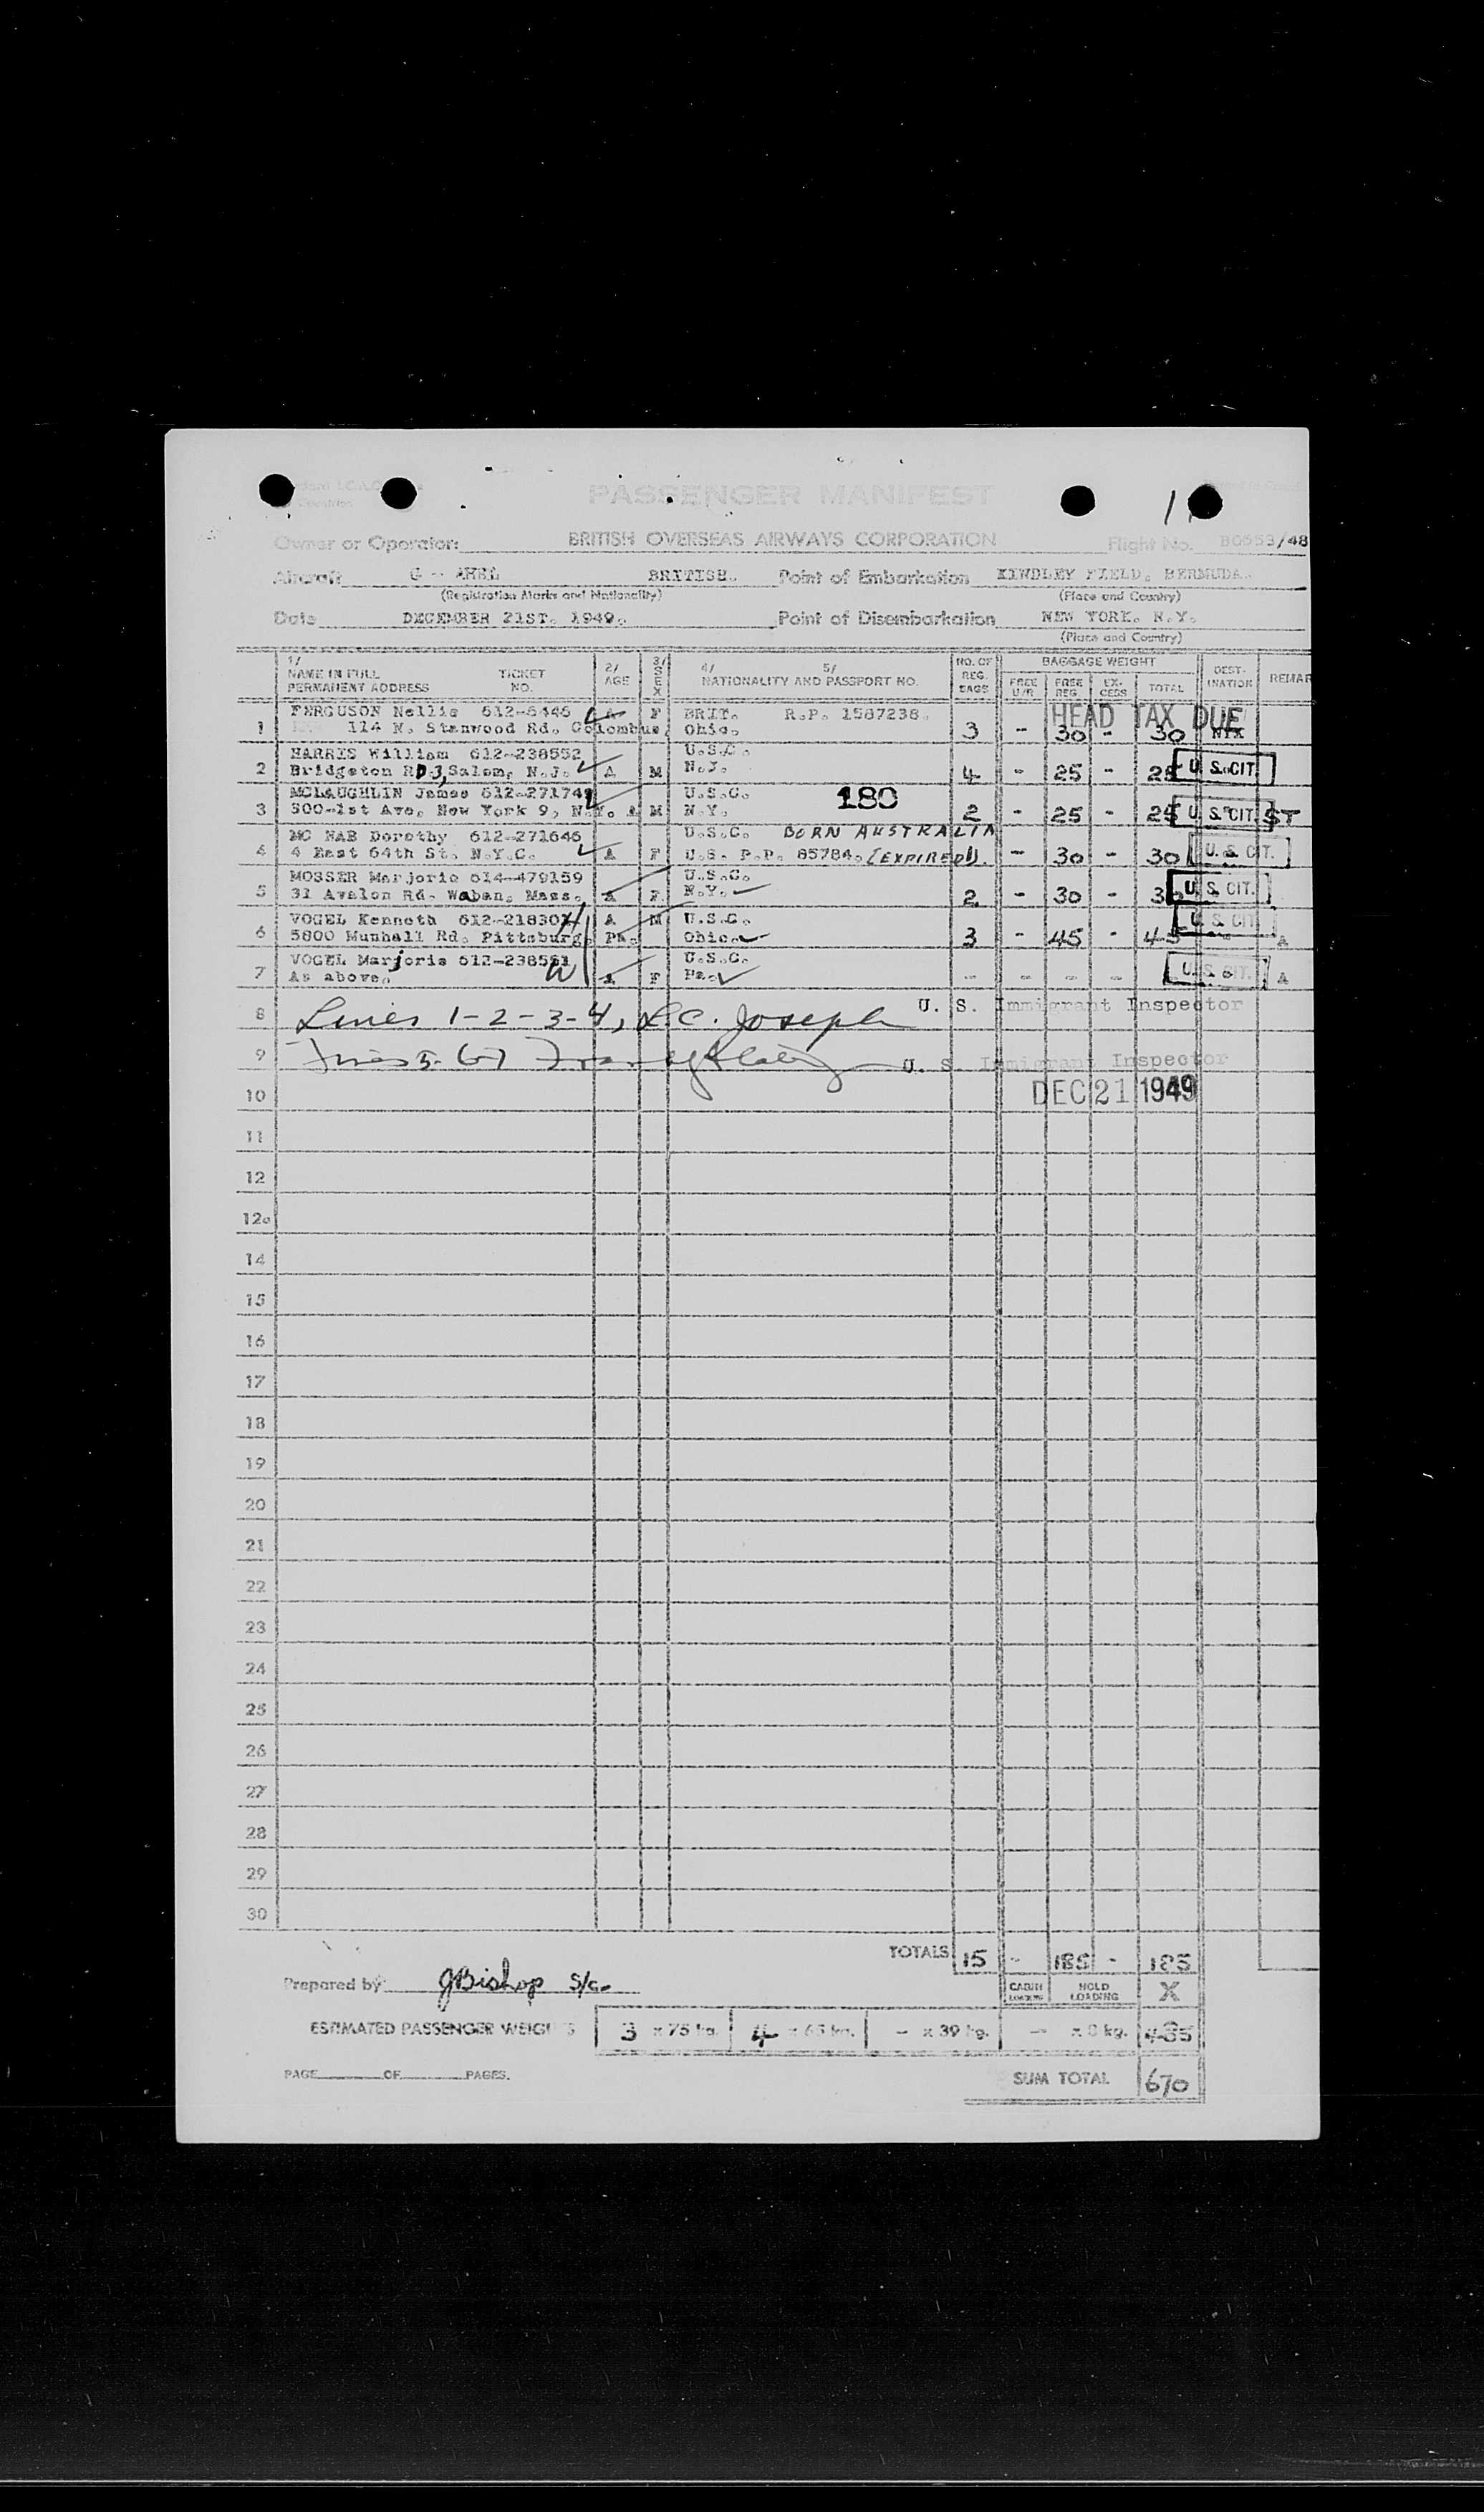 PASSENGER MANIFEST
Owner or Operator: BRITISH OVERSEAS AIRWAYS CORPORATION Flight No. BO653/48
Aircraft BRITISH. Point of Embarkation KINDLEY FIELD. BERMUDA.
(Registration Marks and Nationality) (Place and Country)
Date DECEMBER 21ST. 1949. Point of Disembarkation NEW YORK. N.Y.
(Place and Country)
1/ 2/ 3/ 4/ 5/ NO. OF BAGGAGE WEIGHT
NAME IN FULL TICKET AGE SEX NATIONALITY AND PASSPORT NO. REG. FREE FREE EX- TOTAL DEST- REMAR
PERMANENT ADDRESS NO. BAGS U/R REG. CESS INATION
FERGUSON Nellie 612-6446 A F BRIT. R.P. 1587238. HEAD TAX DUE
1 114 N. Stanwood Rd. Columbus, Ohio. 3 - 30 - 30
HARRIS William 612-238552 U.S.C.
2 Bridgeton RD3, Salem, N.J. A M N.J. 4 - 25 - 25 U.S. CIT.
MCLAUGHLIN James 612-271749 U.S.C. 180
3 300-1st Ave. New York 9, N.Y. A M N.Y. 2 - 25 - 25 U.S. CIT. ST
MC NAB Dorothy 612-271646 U.S.C. BORN AUSTRALIA
4 4 East 64th St. N.Y.C. A F U.S. P.P. 85784. (EXPIRED) 1. - 30 - 30 U.S. CIT.
MOSSER Marjorie 614-479159 U.S.C.
5 31 Avalon Rd. Waban, Mass. A F N.Y. 2 - 30 - 30 U.S. CIT.
VOGEL Kenneth 612-218307 A M U.S.C. U.S. CIT.
6 5800 Munhall Rd. Pittsburg, Pa. Ohio. 3 - 45 - 45 A
VOGEL Marjorie 612-238551 U.S.C.
7 As above. A F Pa. - - - - U.S. CIT. A
8 Lines 1-2-3-4, L.C. Joseph U. S. Immigrant Inspector
9 Lines 5-6-7 U. S. Immigrant Inspector
10 DEC 21 1949
11
12
12a
14
15
16
17
18
19
20
21
22
23
24
25
26
27
28
29
30
TOTALS 15 - 185 - 185
Prepared by JBishop S/c. CABIN LOADING HOLD LOADING X
ESTIMATED PASSENGER WEIGHTS 3 x 75 kg. 4 x 65 kg. - x 39 kg. - x 8 kg. 485
PAGE OF PAGES. SUM TOTAL 670